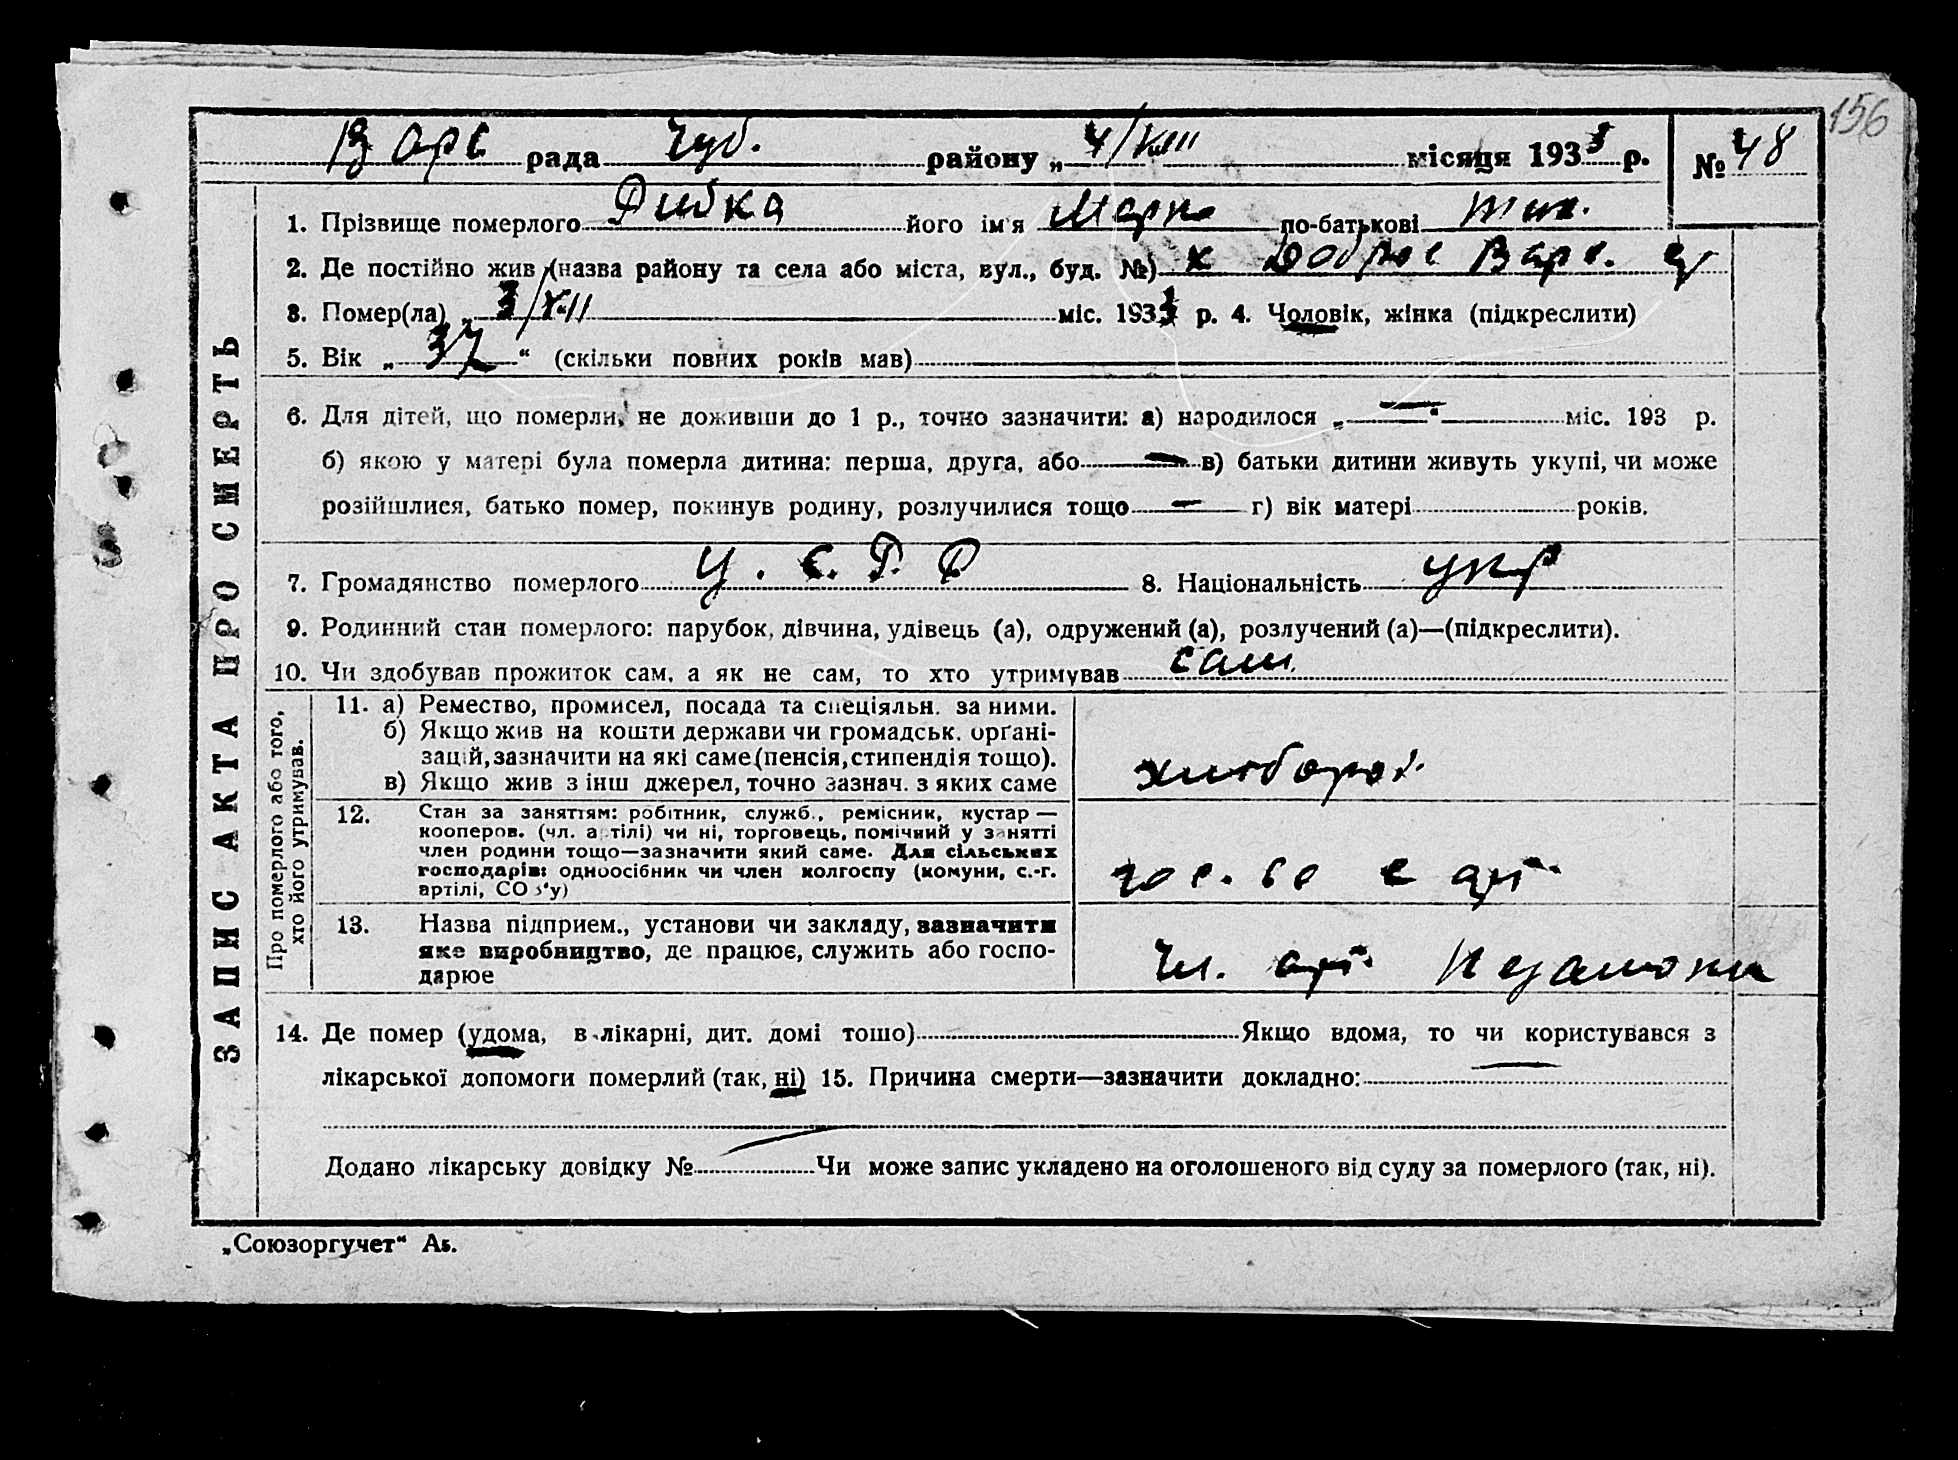 156
Варв рада Чуб. району „ 4/VIII місяця 1933 р. № 48
1. Прізвище померлого Рибка його ім'я Марко по-батькові Тих.
2. Де постійно жив (назва району та села або міста, вул., буд. №) х Доброе Варв.
3. Помер(ла) „ 3/VIII міс. 1933 р. 4. Чоловік, жінка (підкреслити)
5. Вік „ 37 “ (скільки повних років мав)
6. Для дітей, що померли, не доживши до 1 р., точно зазначити: а) народилося „ — “ міс. 193 р.
б) якою у матері була померла дитина: перша, друга, або — в) батьки дитини живуть укупі, чи може
розійшлися, батько помер, покинув родину, розлучилися тощо — г) вік матері років.
7. Громадянство померлого У. С. Р. Р 8. Національність укр
9. Родинний стан померлого: парубок, дівчина, удівець (а), одружений (а), розлучений (а)—(підкреслити).
10. Чи здобував прожиток сам, а як не сам, то хто утримував сам.
ЗАПИС АКТА ПРО СМЕРТЬ
Про померлого або того,
хто його утримував.
11. а) Ремество, промисел, посада та спеціяльн. за ними.
б) Якщо жив на кошти держави чи громадськ. орґані-
зацій, зазначити на які саме (пенсія, стипендія тощо).
в) Якщо жив з інш джерел, точно зазнач. з яких саме
хлібороб.
12. Стан за заняттям: робітник, служб., ремісник, кустар —
кооперов. (чл. артілі) чи ні, торговець, помічний у занятті
член родини тощо—зазначити який саме. Для сільських
господарів: одноосібник чи член колгоспу (комуни, с.-г.
артілі, СОЗ'у)
арт.
13. Назва підприєм., установи чи закладу, зазначити
яке виробництво, де працює, служить або госпо-
дарює
Чл. арт. Незаможн
14. Де помер (удома, в лікарні, дит. домі тощо) Якщо вдома, то чи користувався з
лікарської допомоги померлий (так, ні) 15. Причина смерти—зазначити докладно: —
Додано лікарську довідку № Чи може запис укладено на оголошеного від суду за померлого (так, ні).
„Союзоргучет“ А5.